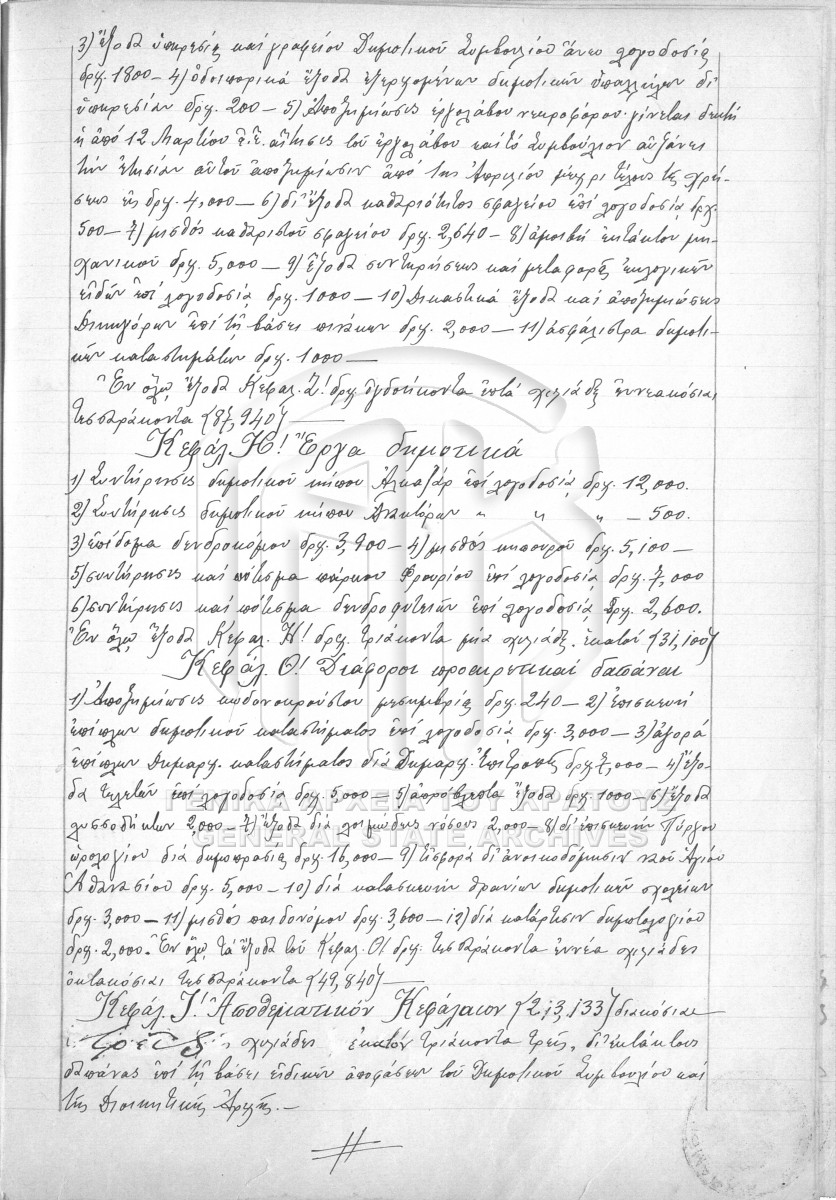 3) Ἔξοδα ὑπηρεσίας καὶ γραφείου Δημοτικοῦ Συμβουλίου ἄνευ λογοδοσίας
δρχ. 1800 — 4) ὁδοιπορικά ἔξοδα ἐξερχομένων δημοτικῶν ὑπαλλήλων δι'
ὑπηρεσίαν δρχ. 200 — 5) Ἀποζημίωσις ἐργολάβου νεκροφόρου· γίνεται δεκτή
ἡ ἀπό 12 Μαρτίου ἔ.ἔ. αἴτησις τοῦ ἐργολάβου καὶ τό Συμβούλιον αὐξάνει
τήν ἐτησίαν αὐτοῦ ἀποζημίωσιν ἀπό 1ης Ἀπριλίου μέχρι τέλους τῆς χρή-
σεως εἰς δρχ. 4,000 — 6) δι' ἔξοδα καθαριότητος σφαγείου ἐπί λογοδοσίᾳ δρχ.
500 — 7) μισθός καθαριστοῦ σφαγείου δρχ. 2,640 — 8) ἀμοιβή ἐκτάκτου μη-
χανικοῦ δρχ. 5,000 — 9) Ἔξοδα συντηρήσεως καὶ μεταφορᾶς ἐκλογικῶν
εἰδῶν ἐπί λογοδοσίᾳ δρχ. 1000 — 10) Δικαστικά ἔξοδα καὶ ἀποζημιώσεις
Δικηγόρων ἐπί τῇ βάσει πινάκων δρχ. 2,000 — 11) ἀσφάλιστρα δημοτι-
κῶν καταστημάτων δρχ. 1000 —
Ἐν ὅλῳ ἔξοδα Κεφαλ. Ζ! δρχ. ὀγδοήκοντα ἑπτά χιλιάδες ἐννεακόσιαι
τεσσαράκοντα (87,940) —
Κεφάλ. Η! Ἔργα δημοτικά
1) Συντήρησις δημοτικοῦ κήπου Ἀλκαζάρ ἐπί λογοδοσίᾳ δρχ. 12,000.
2) Συντήρησις δημοτικοῦ κήπου " " " — 500.
3) ἐπίδομα δενδροκόμου δρχ. 3,900 — 4) μισθός κηπουροῦ δρχ. 5,100 —
5) συντήρησις καὶ πότισμα πάρκου Φρουρίου ἐπί λογοδοσίᾳ δρχ. 7,000
6) συντήρησις καὶ πότισμα δενδροφυτειῶν ἐπί λογοδοσίᾳ δρχ. 2,600.
Ἐν ὅλῳ ἔξοδα Κεφαλ. Η! δρχ. τριάκοντα μία χιλιάδες ἑκατόν (31,100)
Κεφάλ. Θ! Διάφοροι προαιρετικαί δαπάναι
1) Ἀποζημίωσις κωδονοκρούστου μεσημβρίας δρχ. 240 — 2) ἐπισκευή
ἐπίπλων δημοτικοῦ καταστήματος ἐπί λογοδοσίᾳ δρχ. 3,000 — 3) ἀγορά
ἐπίπλων Δημαρχ. καταστήματος διά Δημαρχ. Ἐπιτροπῆς δρχ. 7,000 — 4) Ἔξο-
δα τελετῶν ἐπί λογοδοσίᾳ δρχ. 5,000 — 5) ἀπρόβλεπτα ἔξοδα δρχ. 1000 — 6) ἔξοδα
λυσσοδήκτων 2,000 — 7) ἔξοδα διά λοιμώδεις νόσους 2,000 — 8) δι' ἐπισκευήν Πύργου
ὡρολογίου διά δημοπρασίας δρχ. 16,000 — 9) Εἰσφορά δι' ἀνοικοδόμησιν ναοῦ Ἁγίου
Ἀθανασίου δρχ. 5,000 — 10) διά κατασκευήν θρανίων δημοτικῶν σχολείων
δρχ. 3,000 — 11) μισθός παιδονόμου δρχ. 3,600 — 12) διά κατάρτισιν δημοτολογίου
δρχ. 2,000. Ἐν ὅλῳ τά ἔξοδα τοῦ Κεφαλ. Θ! δρχ. τεσσαράκοντα ἐννέα χιλιάδες
ὀκτακόσιαι τεσσαράκοντα (49,840) —
Κεφάλ. Ι! Ἀποθεματικόν Κεφάλαιον (213,133) διακόσιαι
χιλιάδες ἑκατόν τριάκοντα τρεῖς, δι' ἐκτάκτους
δαπάνας ἐπί τῇ βάσει εἰδικῶν ἀποφάσεων τοῦ Δημοτικοῦ Συμβουλίου καὶ
τῆς Διοικητικῆς Ἀρχῆς. —
ΓΕΝΙΚΑ ΑΡΧΕΙΑ ΤΟΥ ΚΡΑΤΟΥΣ
GENERAL STATE ARCHIVES